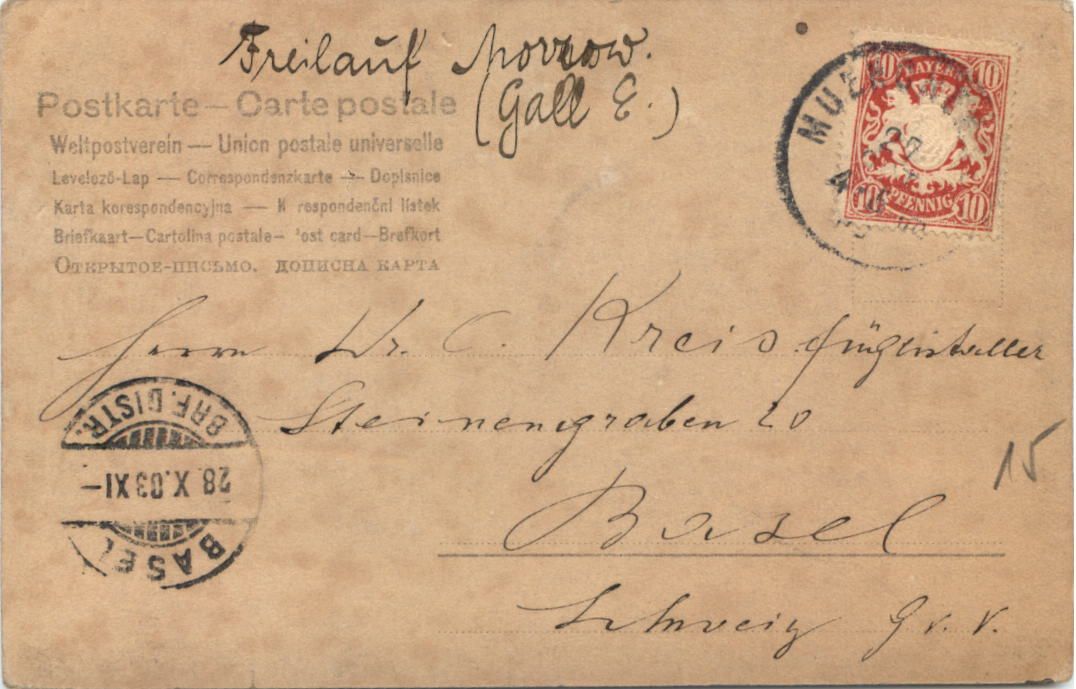 Freilauf
(Gall E.)
Postkarte — Carte postale
Weltpostverein — Union postale universelle
Levelező-Lap — Correspondenzkarte — Dopisnice
Karta korespondencyjna — K respondenční listek
Briefkaart—Cartolina postale— ost card—Brefkort
Открытое-письмо. дописна карта
BAYERN
10 10
10 PFENNIG 10
27
Herrn Dr. C. Kreis
Steinengraben 20
Basel
Schweiz
15
BRF. DISTR.
28 X.03 XI—
BASEL